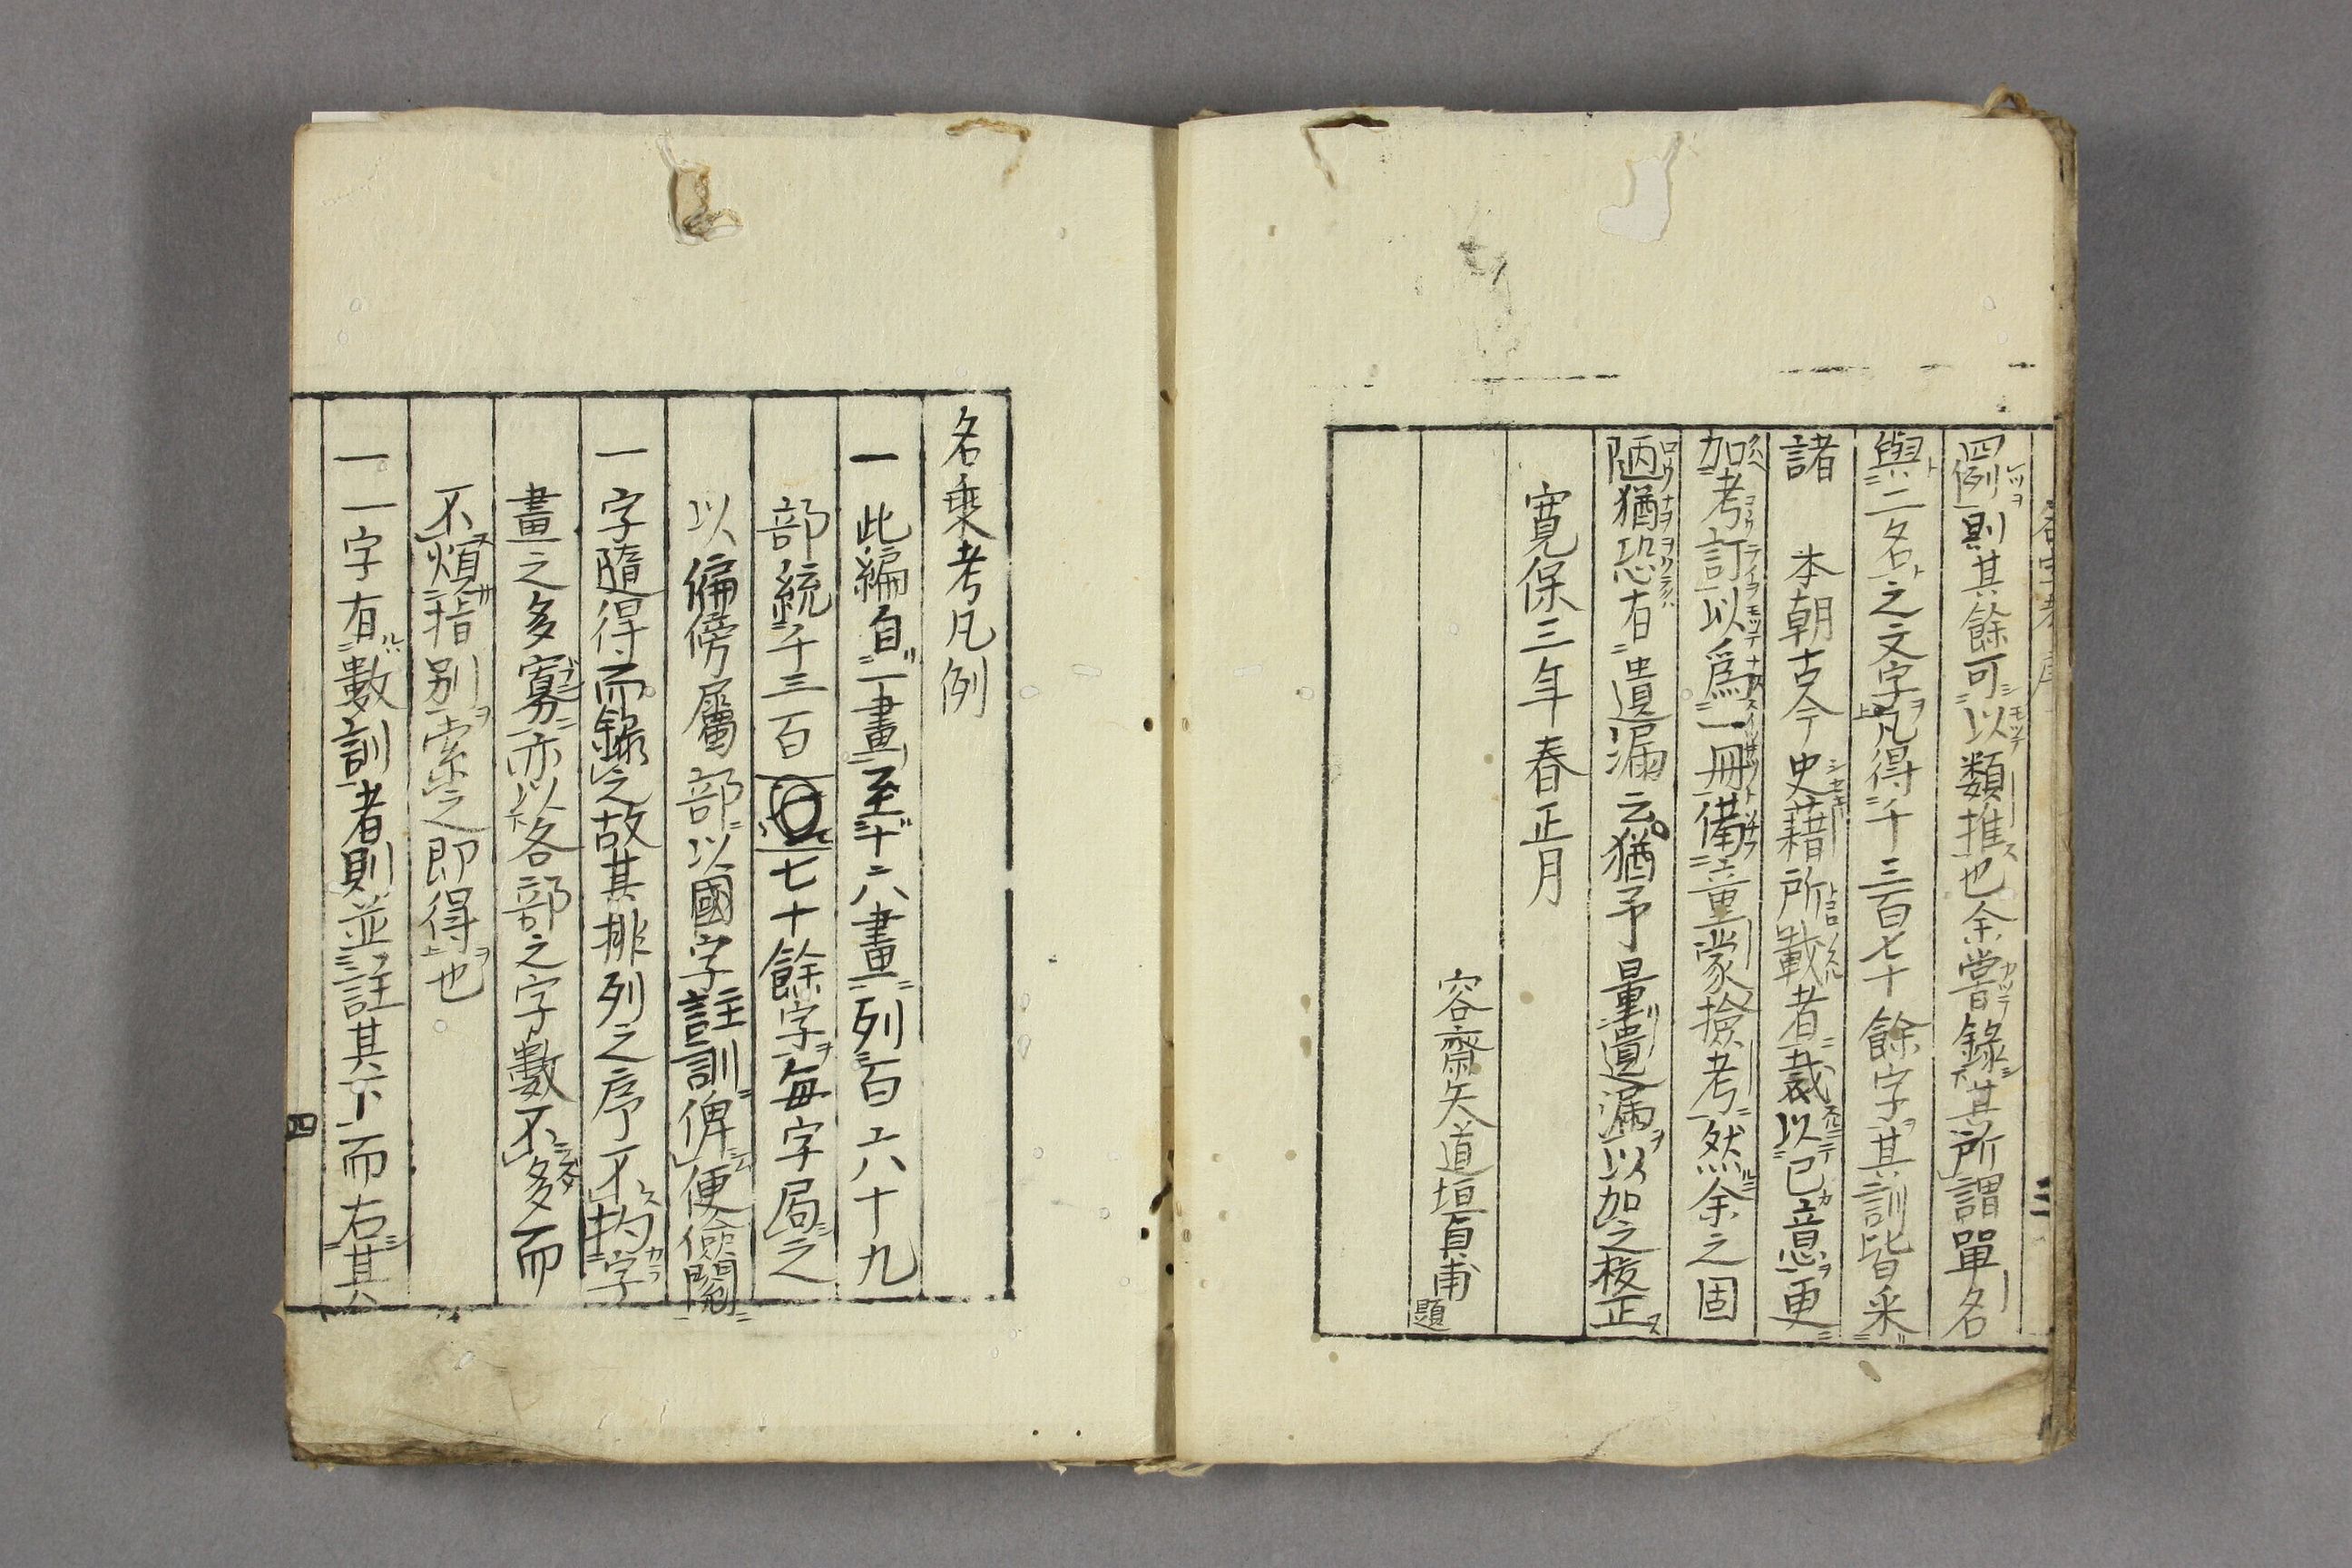 四例則其餘可以類推也余嘗錄其所謂單名
與二名之文字凡得千三百七十餘字其訓皆采
諸　本朝古今史藉所載者裁以已意更
加考訂以爲一冊備童蒙撿考然余之固
陋猶恐有遺漏云猶予量遺漏以加之校正
寛保三年春正月
容齋矢道垣貞甫題
名乗考凡例
一此編自一畫至十六畫列百六十九
部統千三百七十餘字每字局之
以偏傍屬部以國字註訓俾便儉閱
一字隨得而錄之故其排列之序不拘字
畫之多寡亦以各部之字數不多而
不煩指別索之即得也
一一字有數訓者則並註其下而右其
四